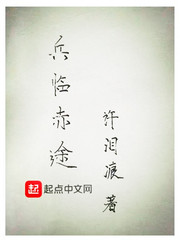 兵临赤途
许泪痕 著
起 起点中文网